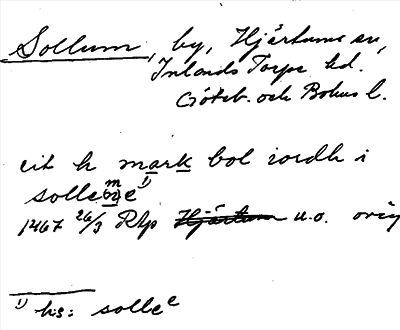 Sollum, by, Hjärtums sn,
Inlands Torpe hd.
Göteb. och Bohus l.
eit h mark bol iordh i
solleme 1)
1467 26/3 Rtp u.o. orig
1) hs: solle e